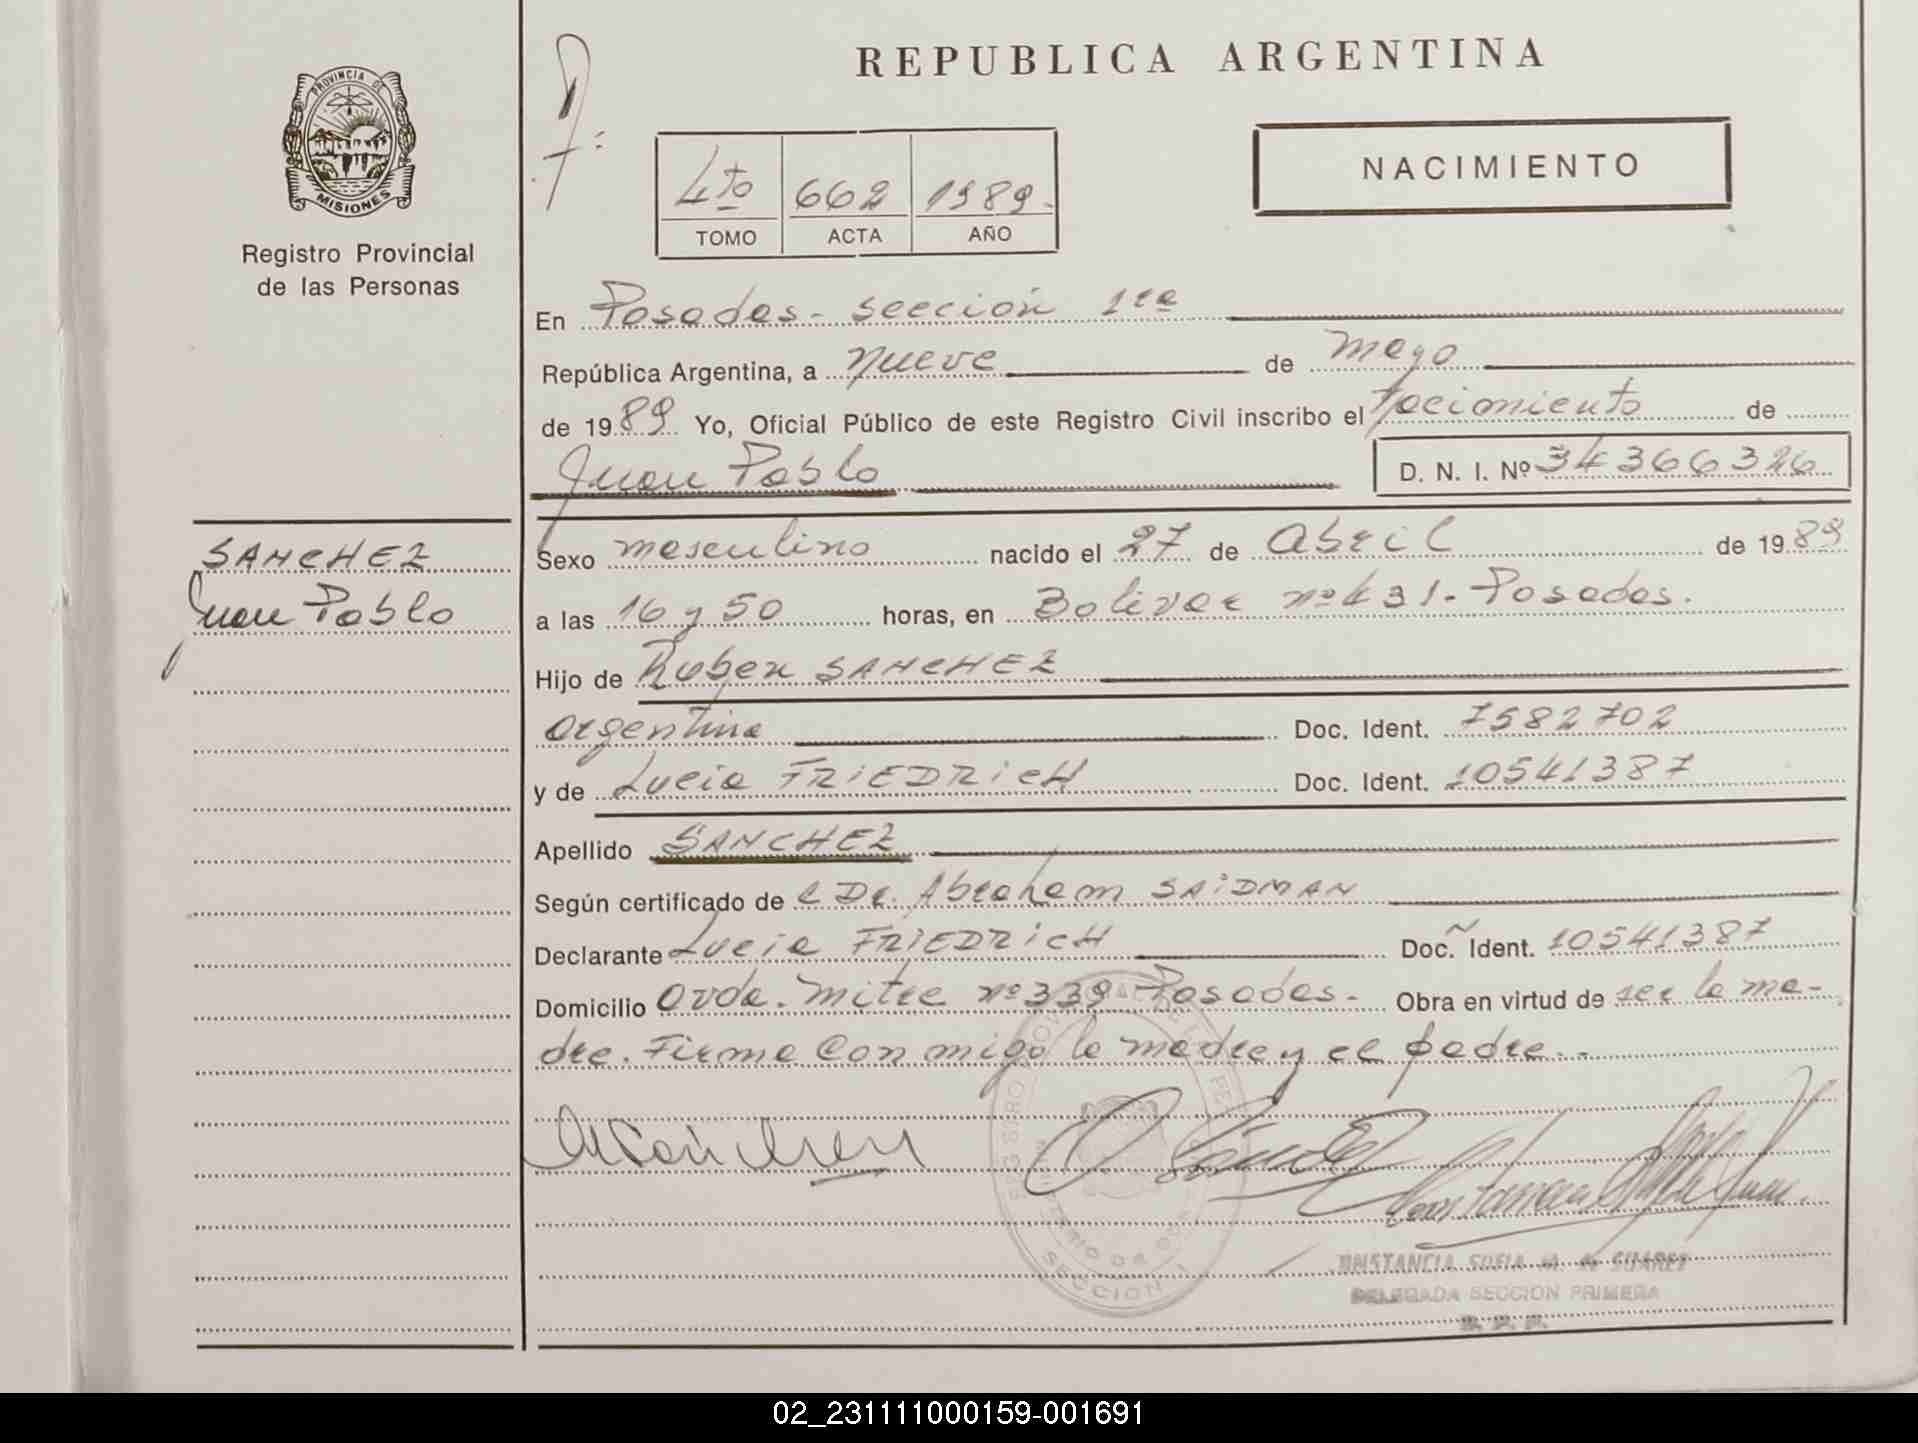 REPUBLICA ARGENTINA
PROVINCIA DE
MISIONES
Registro Provincial
de las Personas
4to 662 1989
TOMO ACTA AÑO
NACIMIENTO
En Posadas - sección 1ra
República Argentina, a nueve de mayo
de 1989 Yo, Oficial Público de este Registro Civil inscribo el nacimiento de
Juan Pablo D. N. I. Nº 34366326
SANCHEZ
Juan Pablo
Sexo masculino nacido el 27 de Abril de 1989
a las 16 y 50 horas, en Bolivar nº 431 - Posadas.
Hijo de Ruben SANCHEZ
argentina Doc. Ident. 7582702
y de Lucia FRIEDRICH Doc. Ident. 10541387
Apellido SANCHEZ
Según certificado de el Dr. Abraham SAIDMAN
Declarante Lucia FRIEDRICH Doc. Ident. 10541387
Domicilio Avda. Mitre nº 339 Posadas - Obra en virtud de ser la ma-
dre. Firma con migo la madre y el padre. -
SECCION 1
CONSTANCIA SOFIA M. de SUAREZ
DELEGADA SECCION PRIMERA
02_231111000159-001691